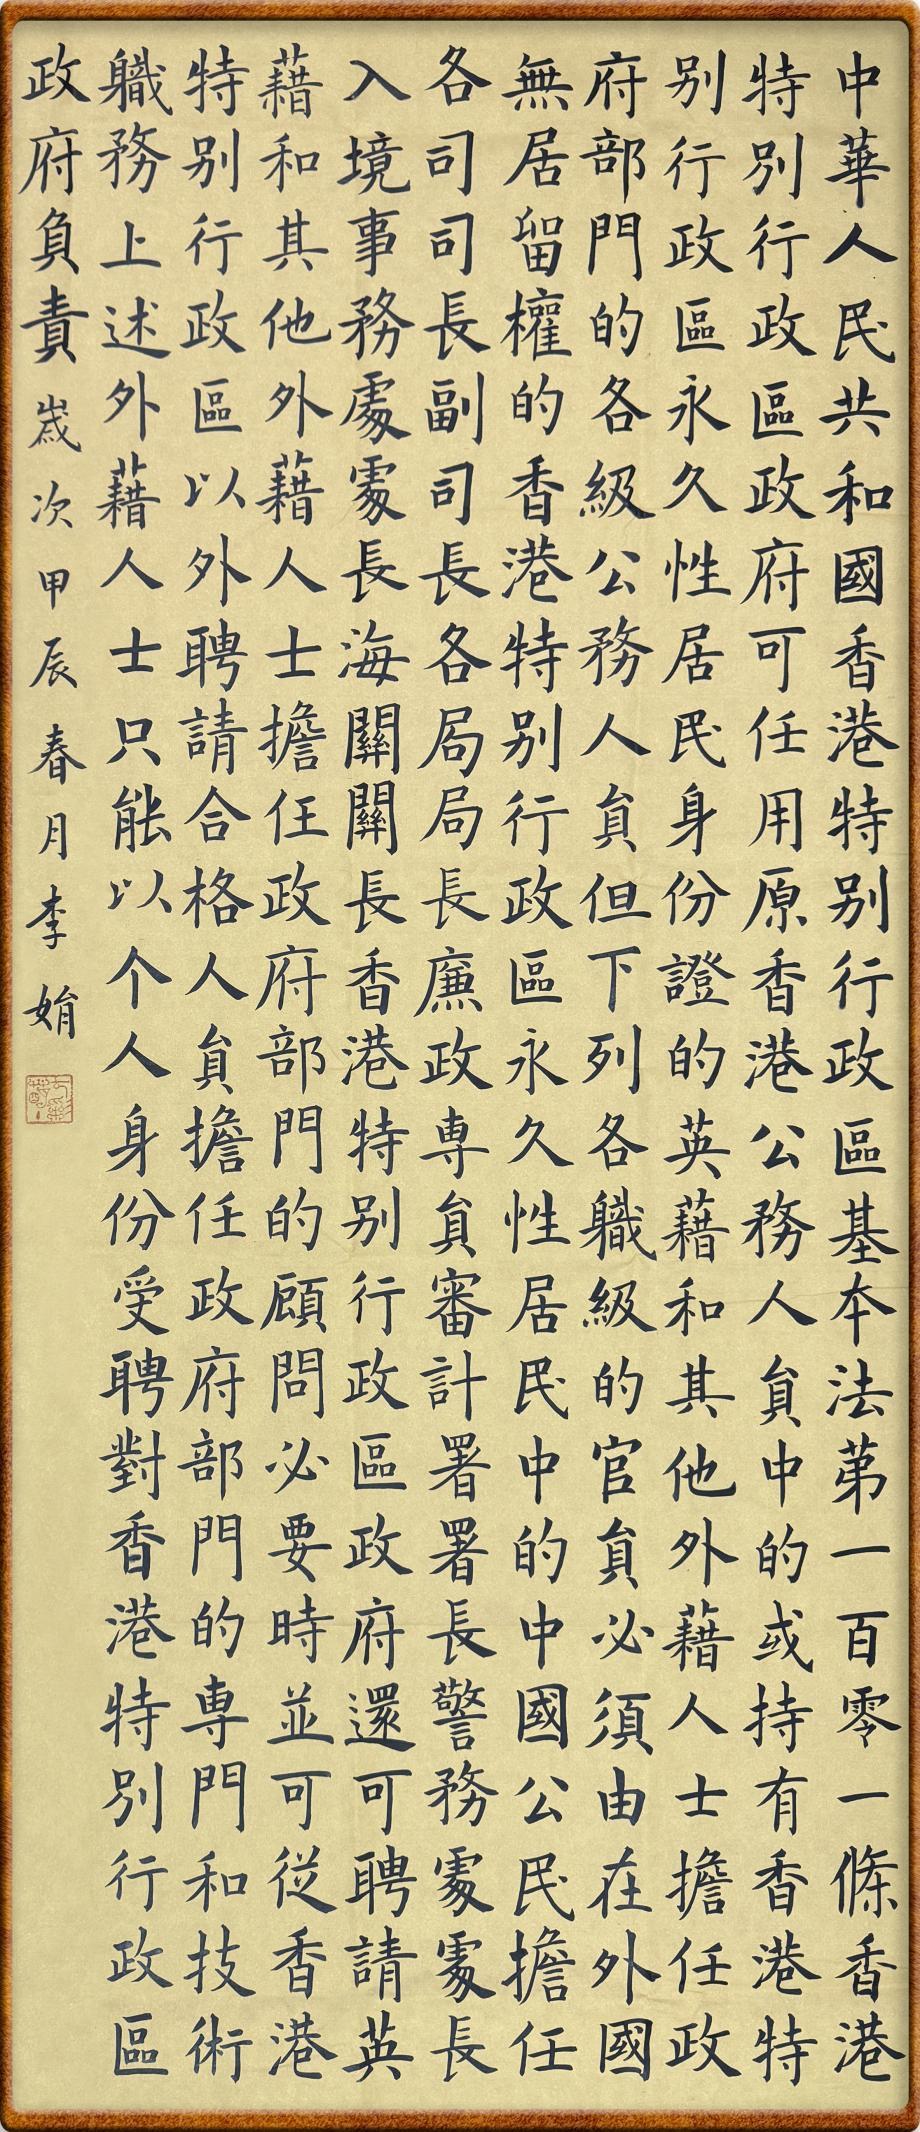 中華人民共和國香港特别行政區基本法苐一百零一條香港
特別行政區政府可任用原香港公務人員中的或持有香港特
别行政區永久性居民身份證的英藉和其他外藉人士擔任政
府部門的各級公務人員但下列各職級的官員必須由在外國
無居留權的香港特别行政區永久性居民中的中國公民擔任
各司司長副司長各局局長廉政專員審計署署長警務處處長
入境事務處處長海關關長香港特别行政區政府還可聘請英
藉和其他外藉人士擔任政府部門的顧問必要時並可從香港
特别行政區以外聘請合格人員擔任政府部門的專門和技術
職務上述外藉人士只能以个人身份受聘對香港特別行政區
政府負責歲次甲辰春月李娟